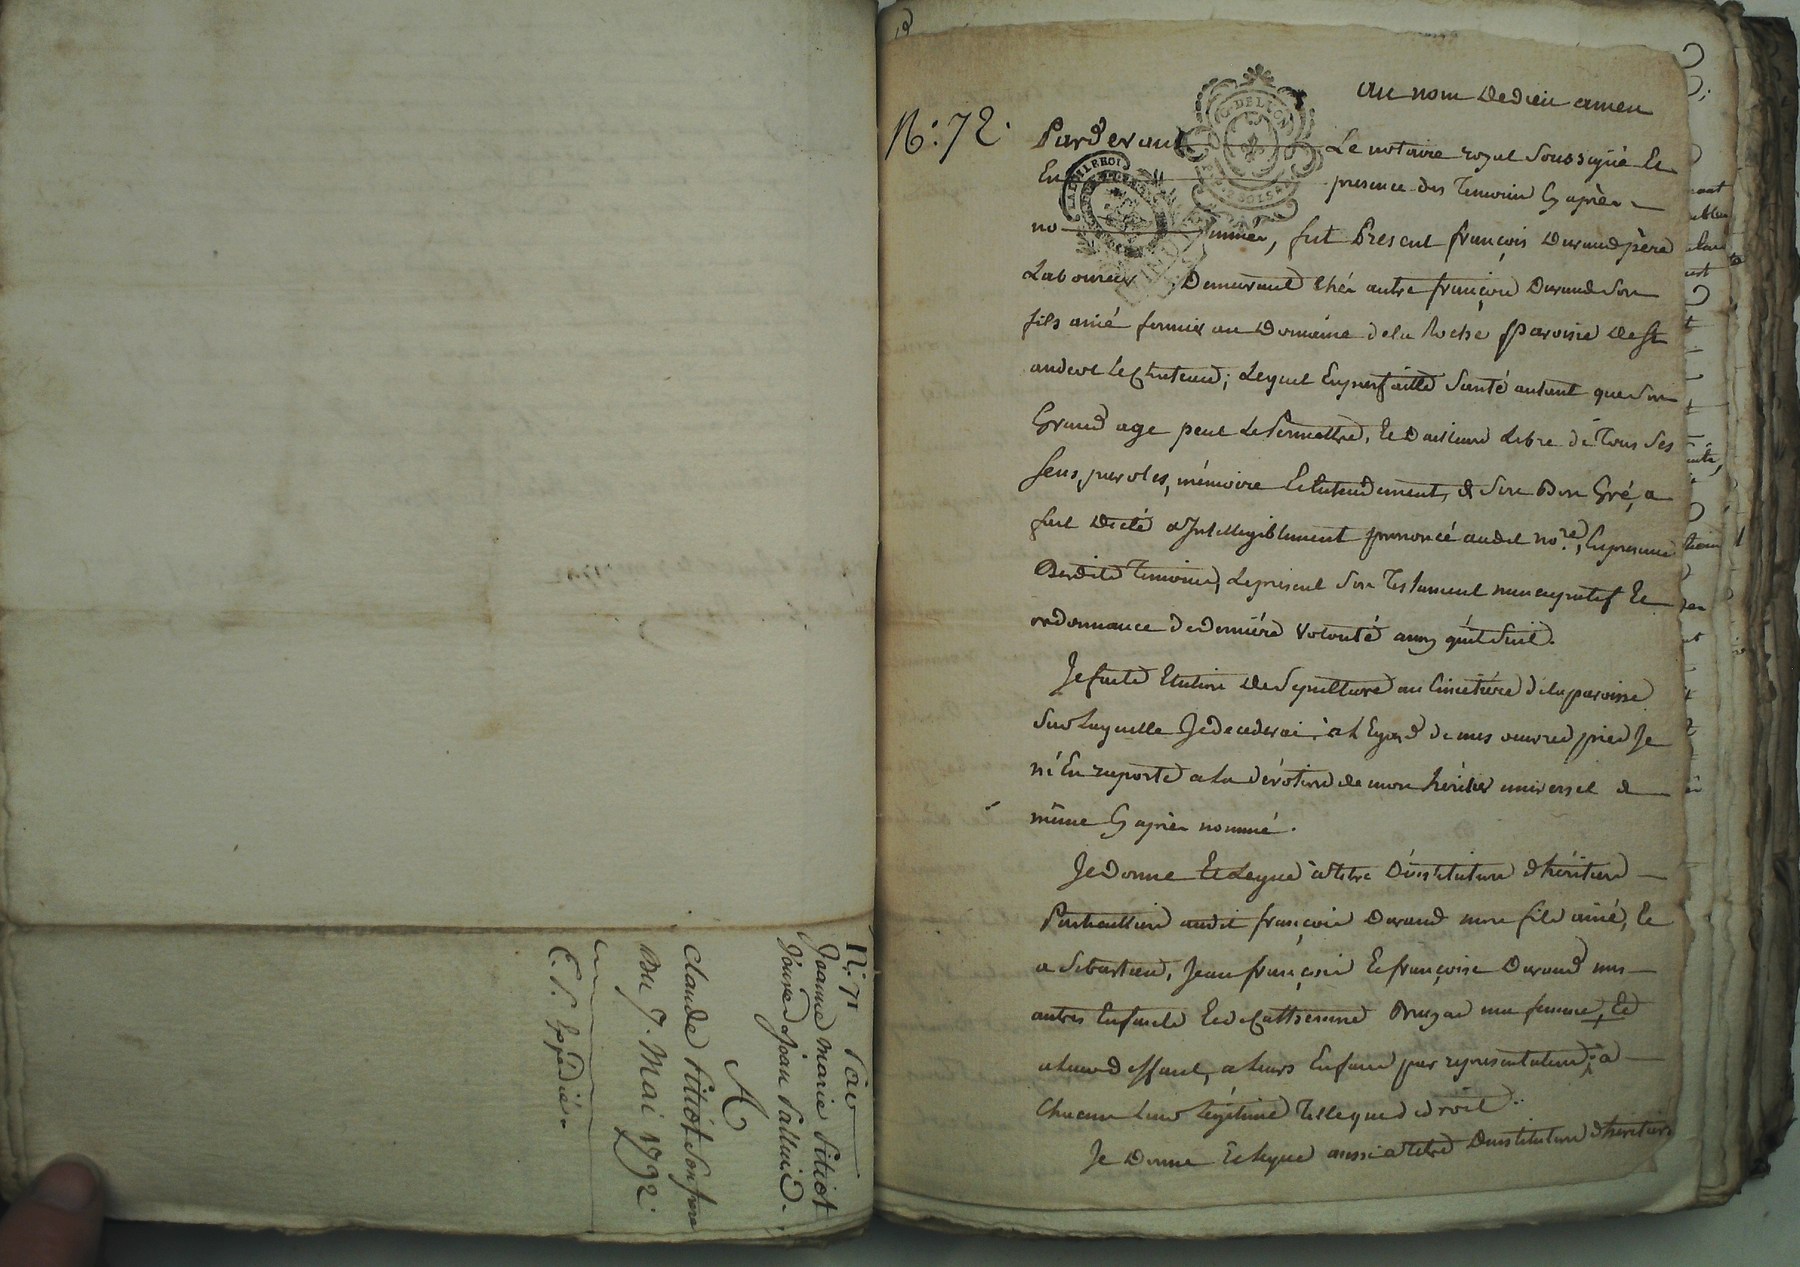 N.° 71 Pav
Jeanne marie Pitiot
Jouve & jean Palluid.
A
Claude Pitiot son frere
Du 7. Mai 1792.
E. P. Expédié.
N.° 72.
au nom de dieu amen
Pardevant Le notaire royal soussigné Et
En presence des temoins cy après
nommés, fut Present françois Durand père
Laboureur Demeurant chés autre françois Durand son
fils ainé fermier au Domaine de la Roche paroisse de st
andeol le chateau; Lequel En parfaitte santé autant que son
Grand age peut Le Permettre, et Dailleurs Libre de Tous ses
sens, paroles, mémoire et Entendement, & de son Bon Gré, a
fait Dicté & Intelligiblement prononcé audit no.re, En presence
Desdits Temoins, Le présent son Testament noncupatif Et
ordonnance de derniére volonté ainsy qu'il suit.
Je fais Election de sepulture au cimetière de la paroisse
sur Laquelle Je decederai, à L'Egard de mes œuvres pies Je
m'En raporte a la dévotion de mon héritier universel &
même cy après nommé.
Je Donne Et Legue à titre D'institution d'héritiers
Particulliers audit françois Durand mon fils ainé, Et
a Sébastien, Jean françois Et françoise Durand mes
autres Enfants Et de Catherinne ma femme, Et
a Leurs deffaut, a leurs Enfans par representation; a
Chacun Leur Légitime Telle que de droit.
Je Donne Et legue aussi à titre D'institution d'héritiers